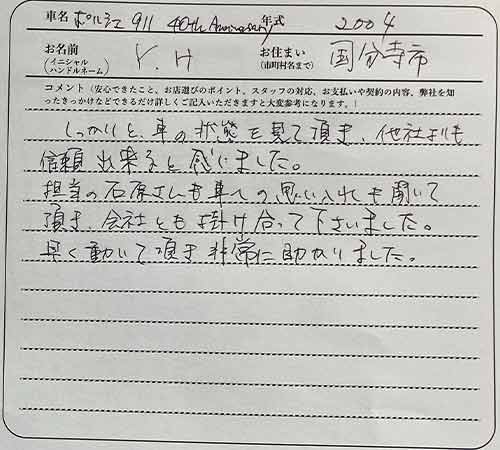 車名 ポルシェ 911 40th Anniversary 年式 2004
お名前 (イニシャル ハンドルネーム) Y.H お住まい (市町村名まで) 国分寺市
コメント（安心できたこと、お店選びのポイント、スタッフの対応、お支払いや契約の内容、弊社を知
ったきっかけなどできるだけ詳しくご記入いただきますと大変参考になります。）
しっかりと、車の状態を見て頂き、他社よりも
信頼出来ると感じました。
担当の石原さんも車への思い入れも聞いて
頂き、会社とも掛け合って下さいました。
早く動いて頂き非常に助かりました。